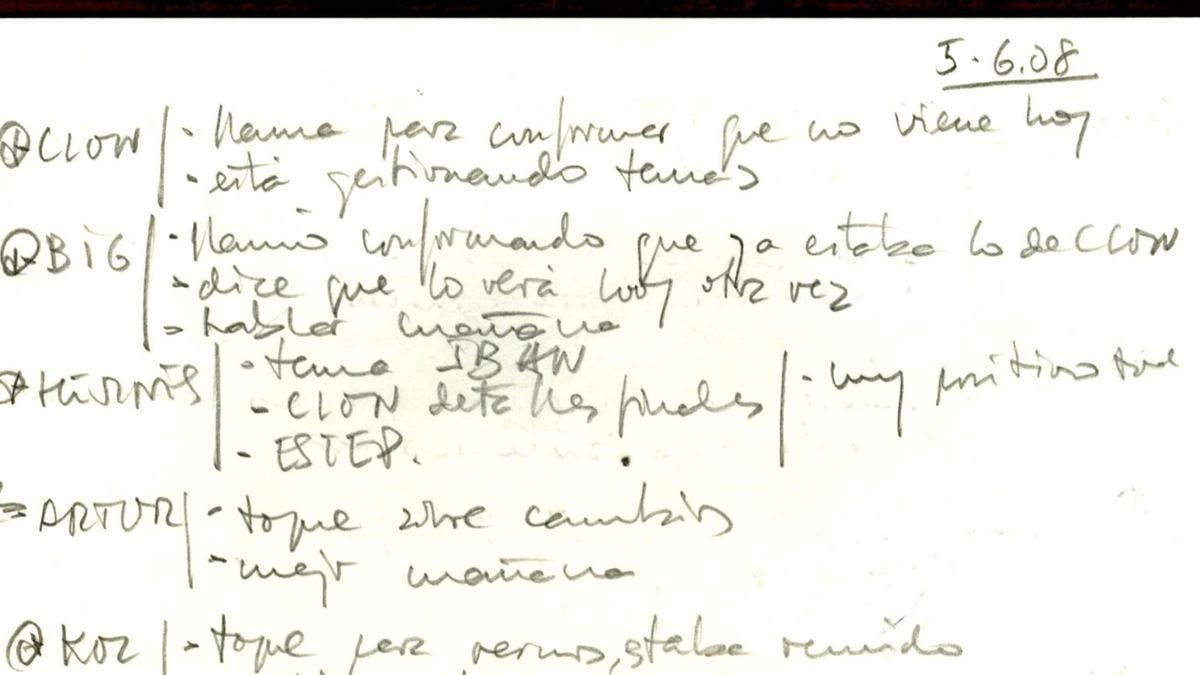 5.6.08
CLOW - llama para confirmar que no viene hoy
- está gestionando temas
BIG - llamó confirmando que ya estaba lo de CLOW
- dice que lo verá hoy otra vez
- hablar mañana
- tema IBAN
- CLOW detalles finales - muy positivo
- ESTEP.
ARTUR - toque sobre cambios
- mejor mañana
KOZ - toque para vernos, estaba reunido